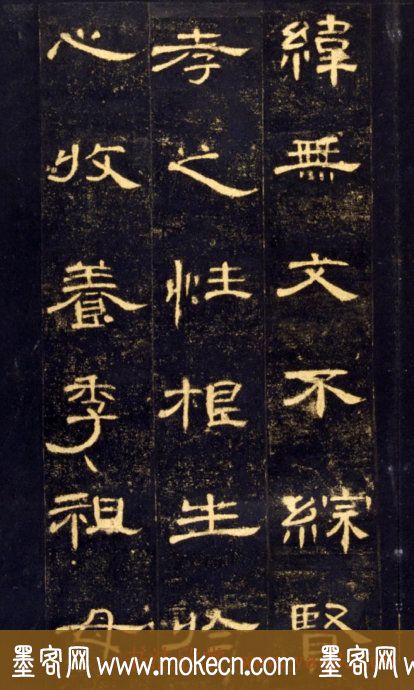 緯無文不綜賢
孝之性根生於
心收養季祖母
墨客网 www.mokecn.com 墨客网